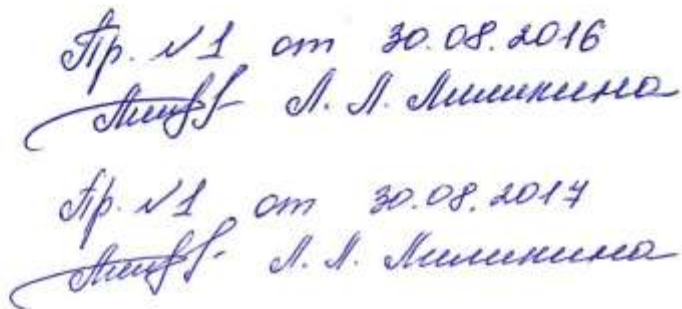 Пр. №1 от 30.08.2016
Л. Л. Миликина
Пр. №1 от 30.08.2017
Л. Л. Миликина